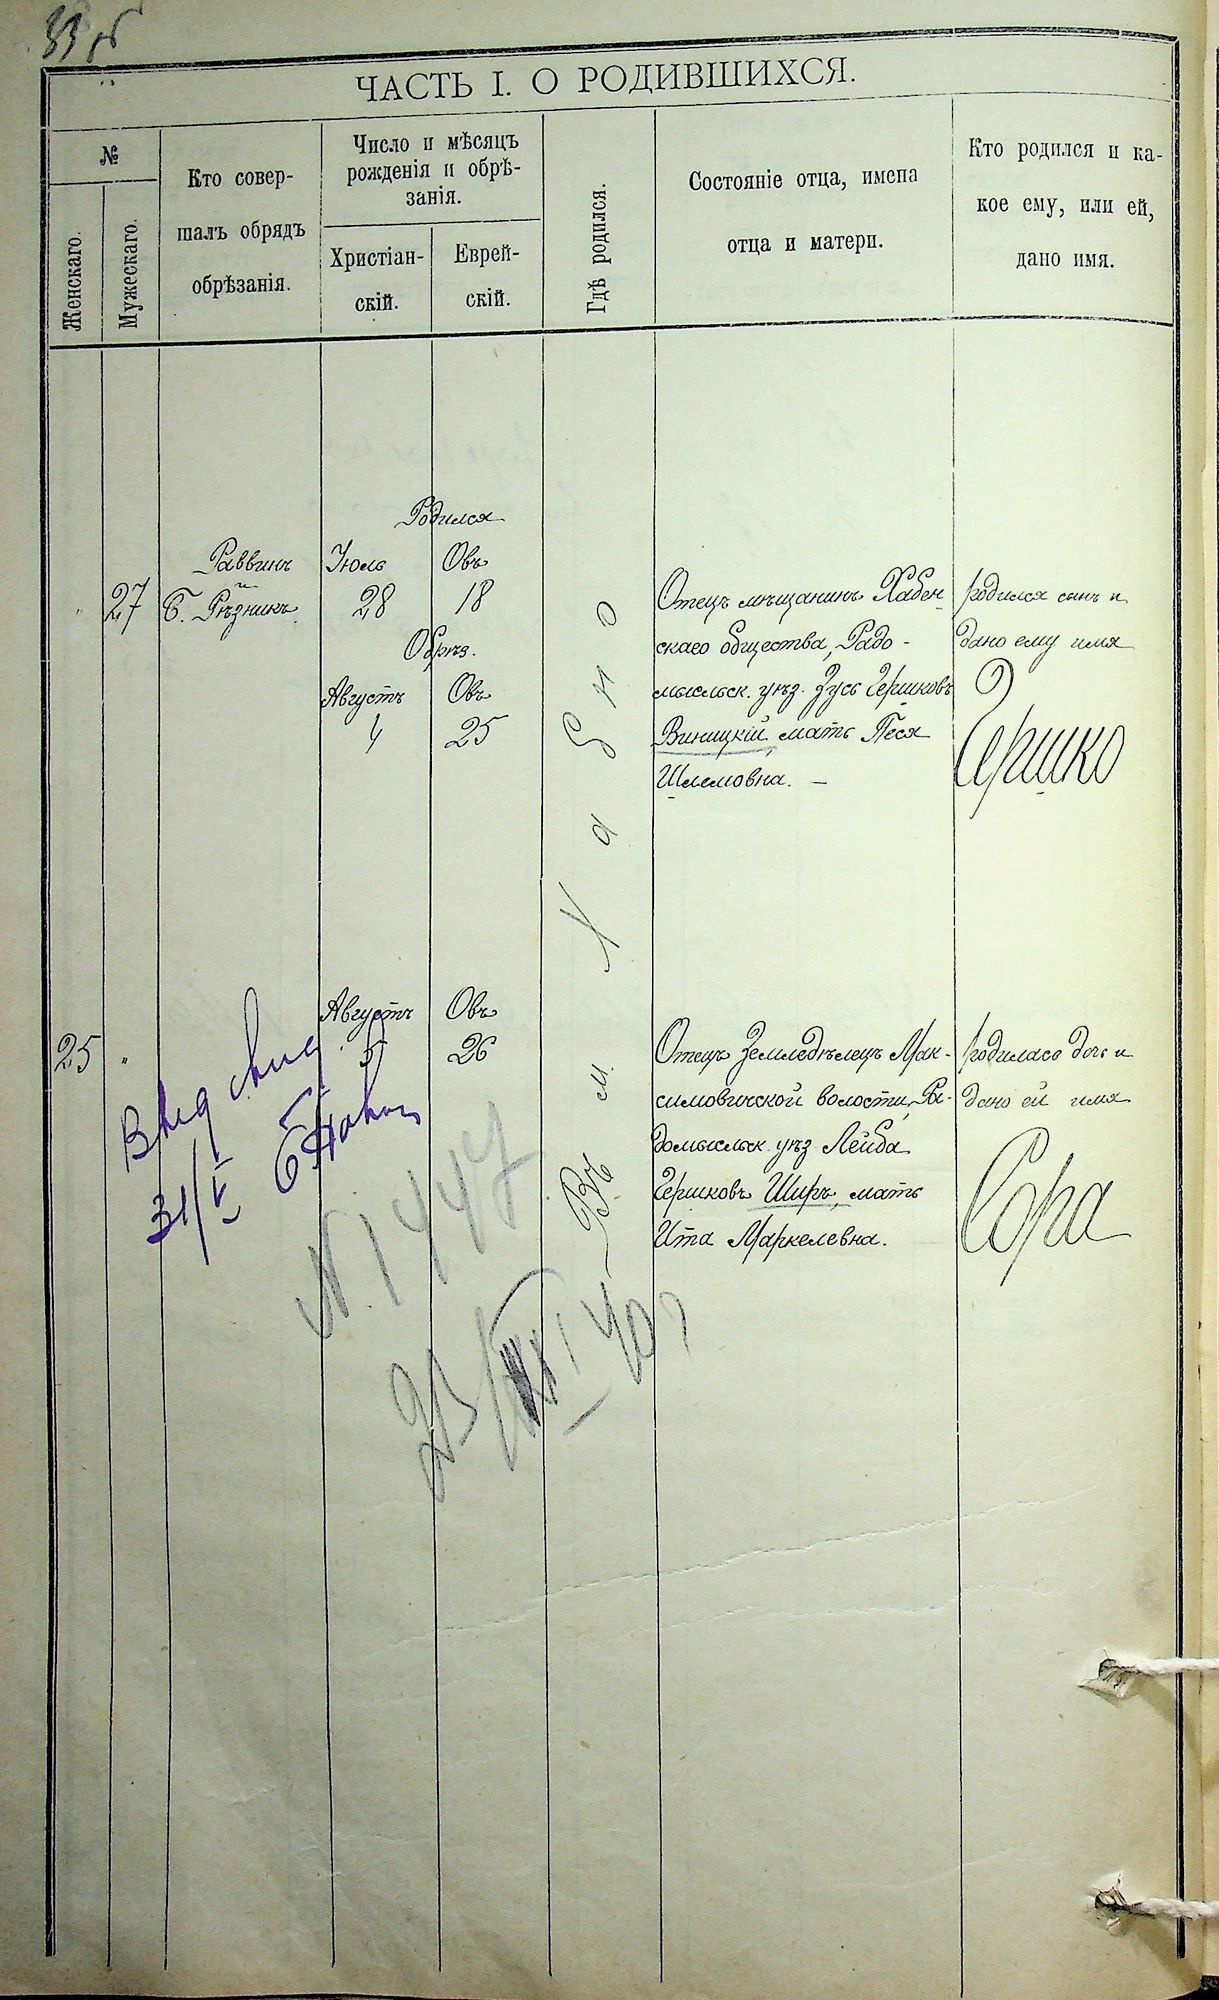 ЧАСТЬ I. О РОДИВШИХСЯ.
№
Женскаго.
Мужескаго.
Кто совер-
шалъ обрядъ
обрѣзанія.
Число и мѣсяцъ
рожденія и обрѣ-
занія.
Христіан-
скій.
Еврей-
скій.
Гдѣ родился.
Состояніе отца, имена
отца и матери.
Кто родился и ка-
кое ему, или ей,
дано имя.
Родился
Раввинъ Іюль Овъ
и
27 Б. Рѣзникъ. 28 18
Обрѣз.
Августъ Овъ
4 25
Въ м. Хабно
Отецъ мѣщанинъ Хабен-
скаго общества, Радо-
мысльск. уѣз. Зусь Гершковъ
Виницкій, мать Песя
Шлемовна. —
родился сынъ и
дано ему имя
Гершко
Августъ Овъ
25 " 5 26
Отецъ Земледѣлецъ Мак-
симовичской волости, Ра-
домысльск. уѣз Лейба
ГершковъШиръ, мать
Ита Маркелевна.
родилась дочь и
дано ей имя
Сора
31/V
N 1447